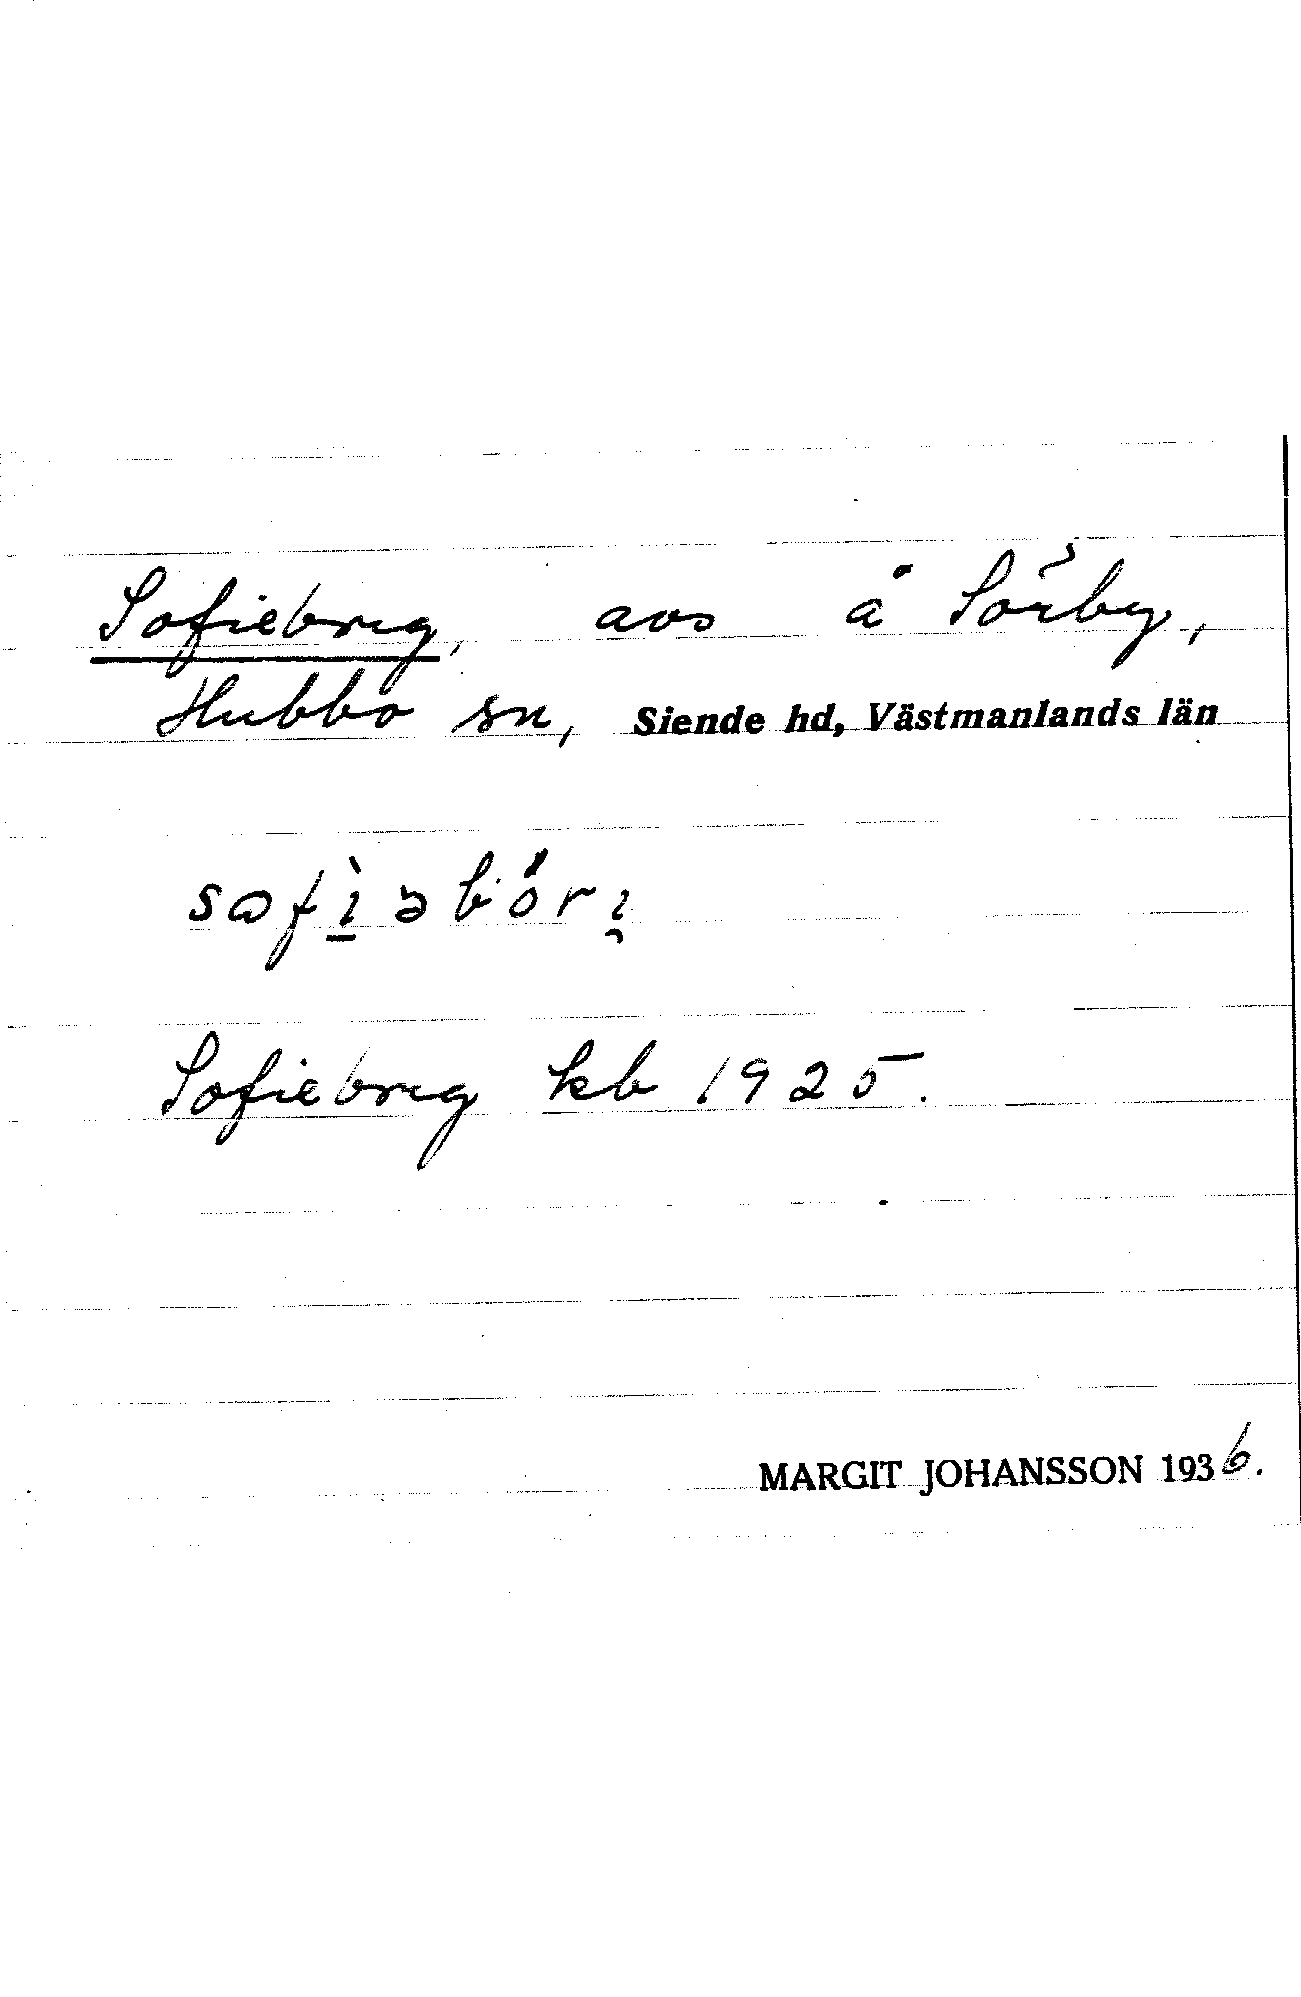 Sofieborg, avs å Sörby,
Hubbo sn, Siende hd, Västmanlands län
Sofieborg kb 1925.
MARGIT JOHANSSON 1936.